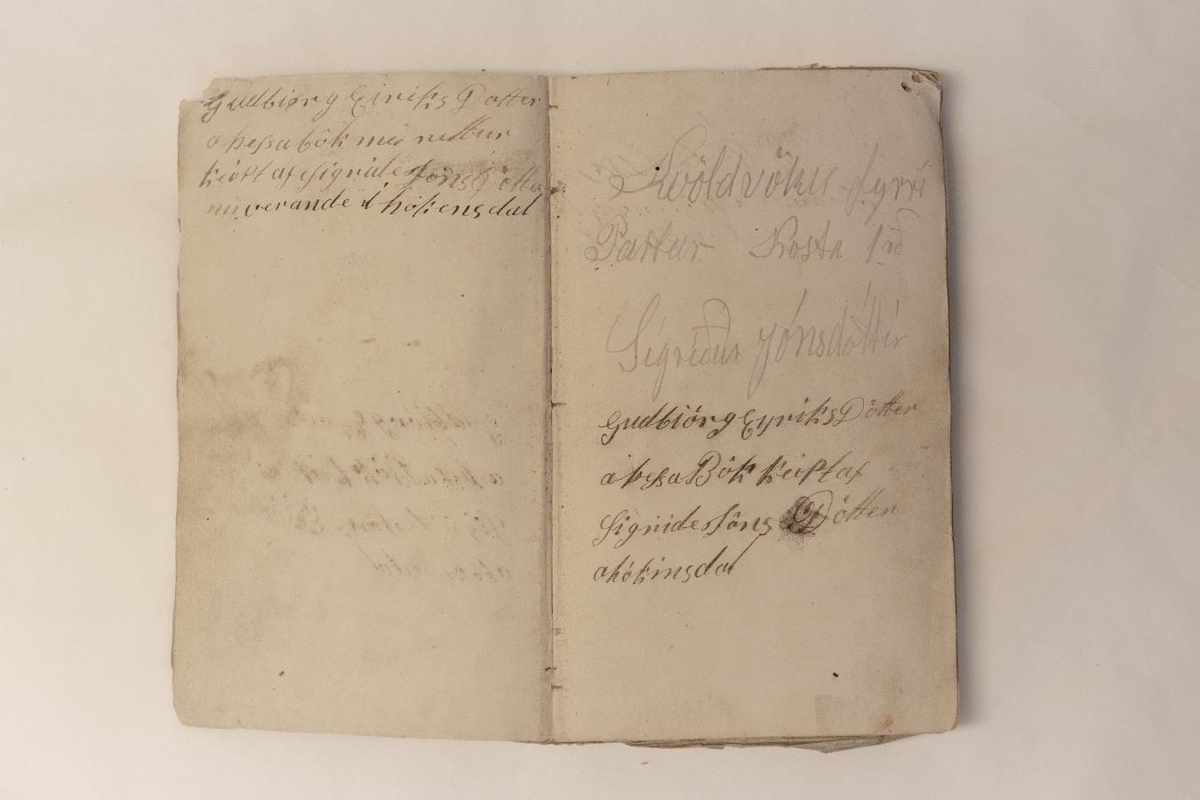 Gudbiörg Eiriks Dotter
a þessa bók med rettur
keipt af Sigride Jóns Dótter
nuverande í hókensdal
Kvöldvöku fyrri
Partur Kosta 1 rd
Sigríður Jónsdóttir
Gudbiörg Eyriks Dötter
a þessa Bök keipt af
Sigride Jöns Dötter
a hókinsdal